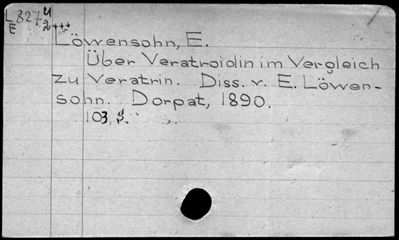 L 827 4
E 2+++
Löwensohn, E.
Über Veratroidin im Vergleich
zu Veratrin. Diss. v. E. Löwen-
sohn. Dorpat, 1890.
103, S.